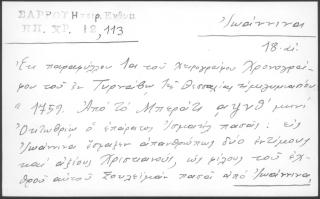 ΣΑΡΡΟΥ Ηπειρ. Ενθυμ.
ΗΠ. ΧΡ. 12, 113
Ἰωάννινα
18. αἰ
Ἐκ παραφύλλου 1α τοῦ Χειρογράφου Χρονογρά-
φου τοῦ ἐν Τυρνάβῳ τῆς Θεσσαλίας
" 1759. Ἀπὸ τὸ Μπεράτι, αψνθʹ μηνὶ
Ὀκτωβρίῳ ὁ ἐπάρατος Ἰσμαὴλ πασᾶς: εἰς
Ἰωάννινα ἔσφαξεν ἀπανθρώπως δύο ἐντίμους
καὶ ἀξίους Χριστιανούς, ὡς φίλους τοῦ ἐχ-
θροῦ αὐτοῦ Σουλεϊμὰν πασᾶ ἀπὸ Ἰωάννινα,